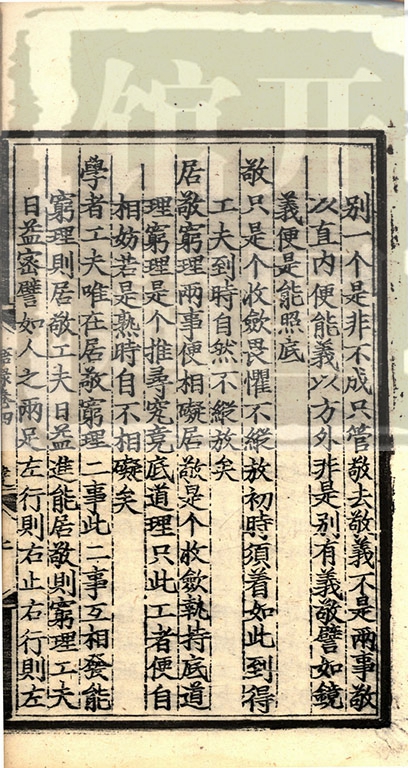 別一个是非不成只管敬去敬義不是兩事敬
以直内便能義以方外非是別有義敬譬如鏡
義便是能照底
敬只是个收斂畏懼不縱放初時須着如此到得
工夫到時自然不縱放矣
居敬窮理兩事便相礙居敬是个收斂執持底道
理窮理是个推尋究竟底道理只此工者便自
相妨若是熟時自不相礙矣
學者工夫唯在居敬窮理二事此二事互相發能
窮理則居敬工夫日益進能居敬則窮理工夫
日益密譬如人之兩足左行則右止右行則左